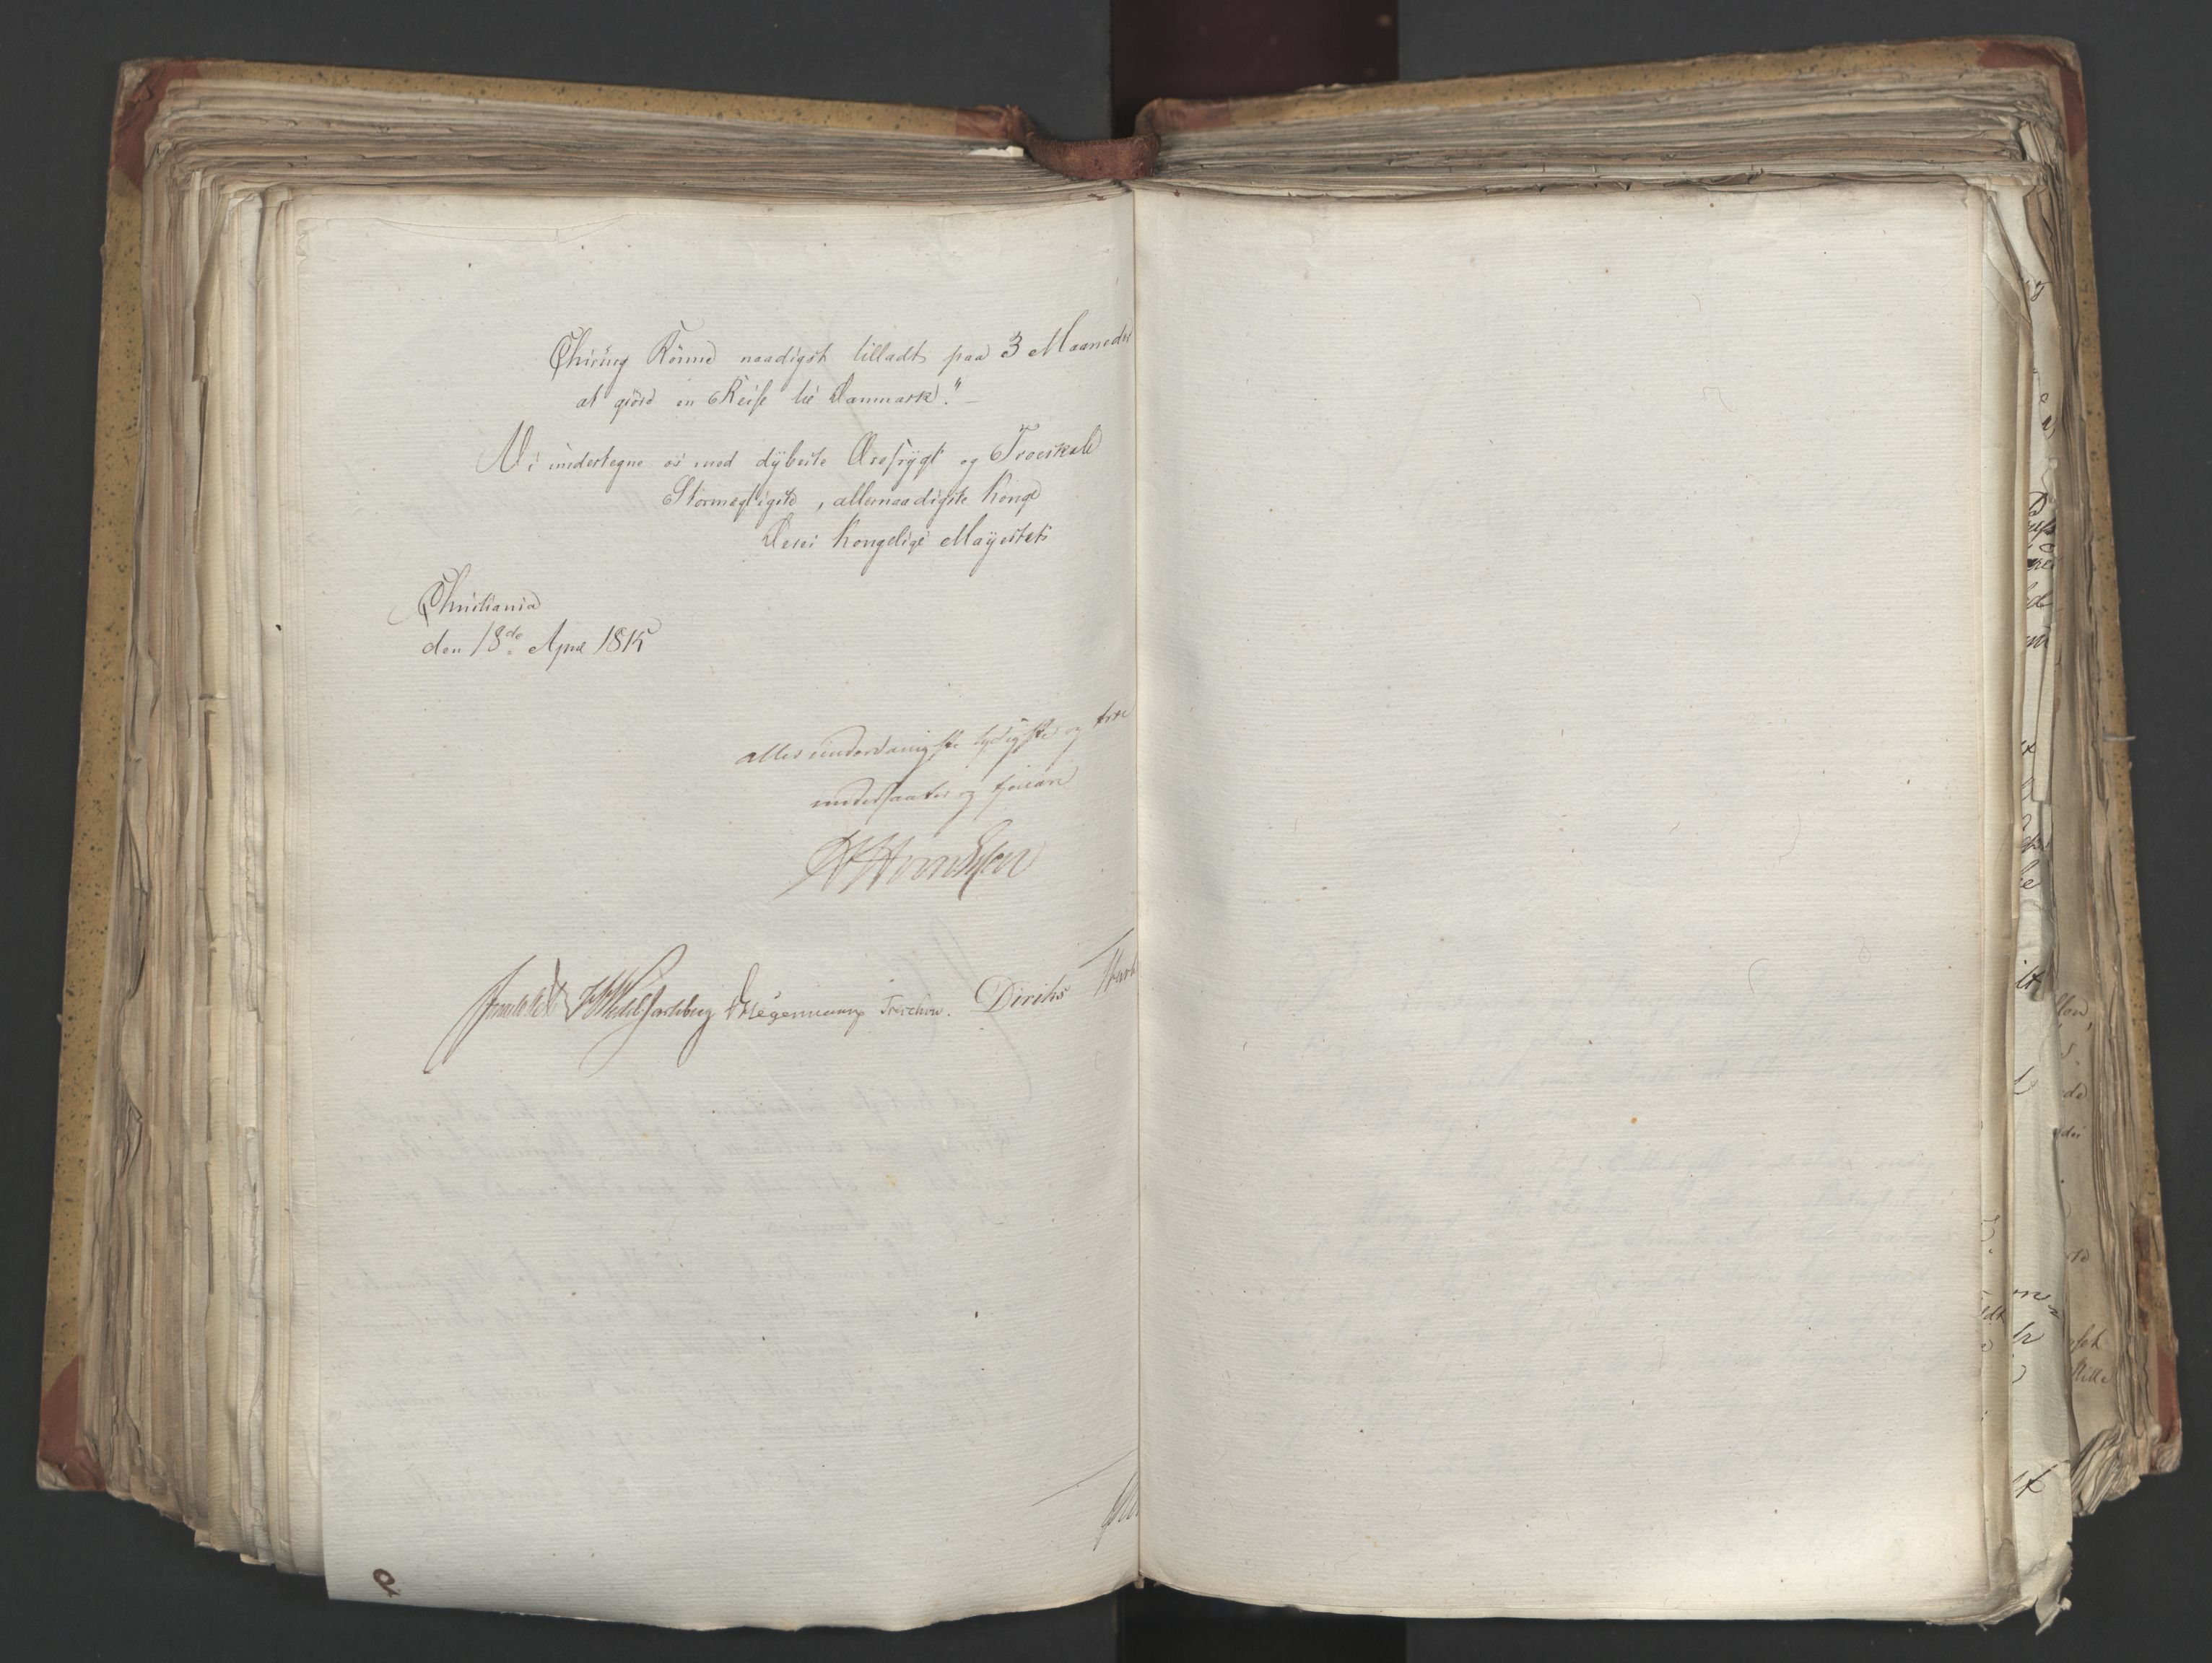 Chirurg Rönne naadigst tilladt paa 3 Maaneder
at giöre en Reise til Danmark." -
Vi undertegne os med dybeste Ærefrygt og Troeskab
Stormægtigste, allernaadigste Konge
Deres Kongelige Mayestets
Christiania
den 18de April 1815
allerunderdanigste lydigste og troe
undersaatter og tjenere
Sommerhielm HWedel Jarlsberg DHegermann Treschow. Diriks